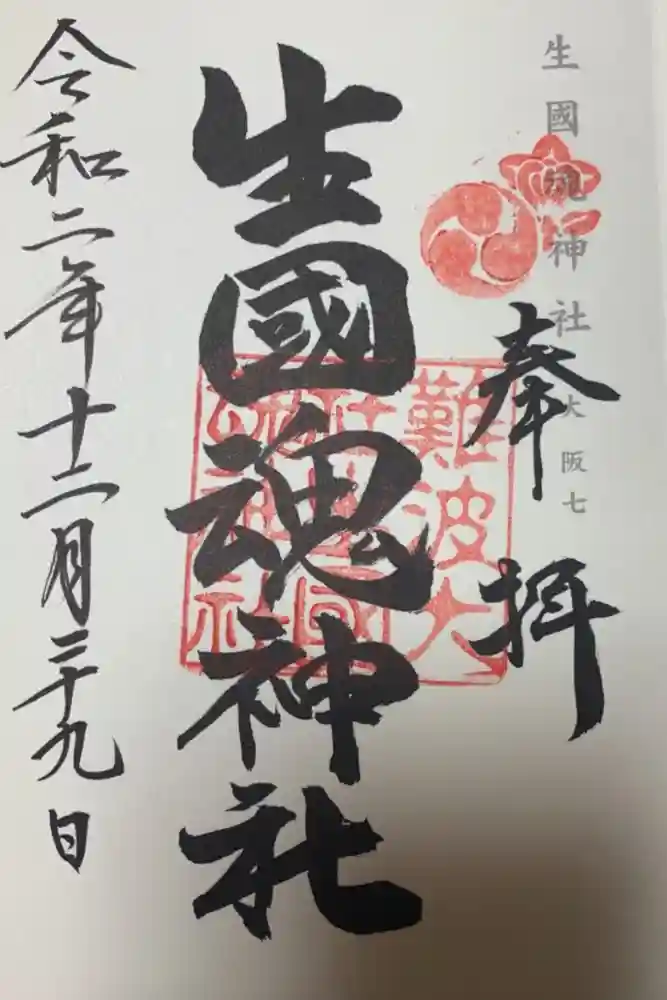 生國魂神社 大阪七
奉拝
難波大
社生國
魂神社
生國魂神社
令和二年十二月二十九日